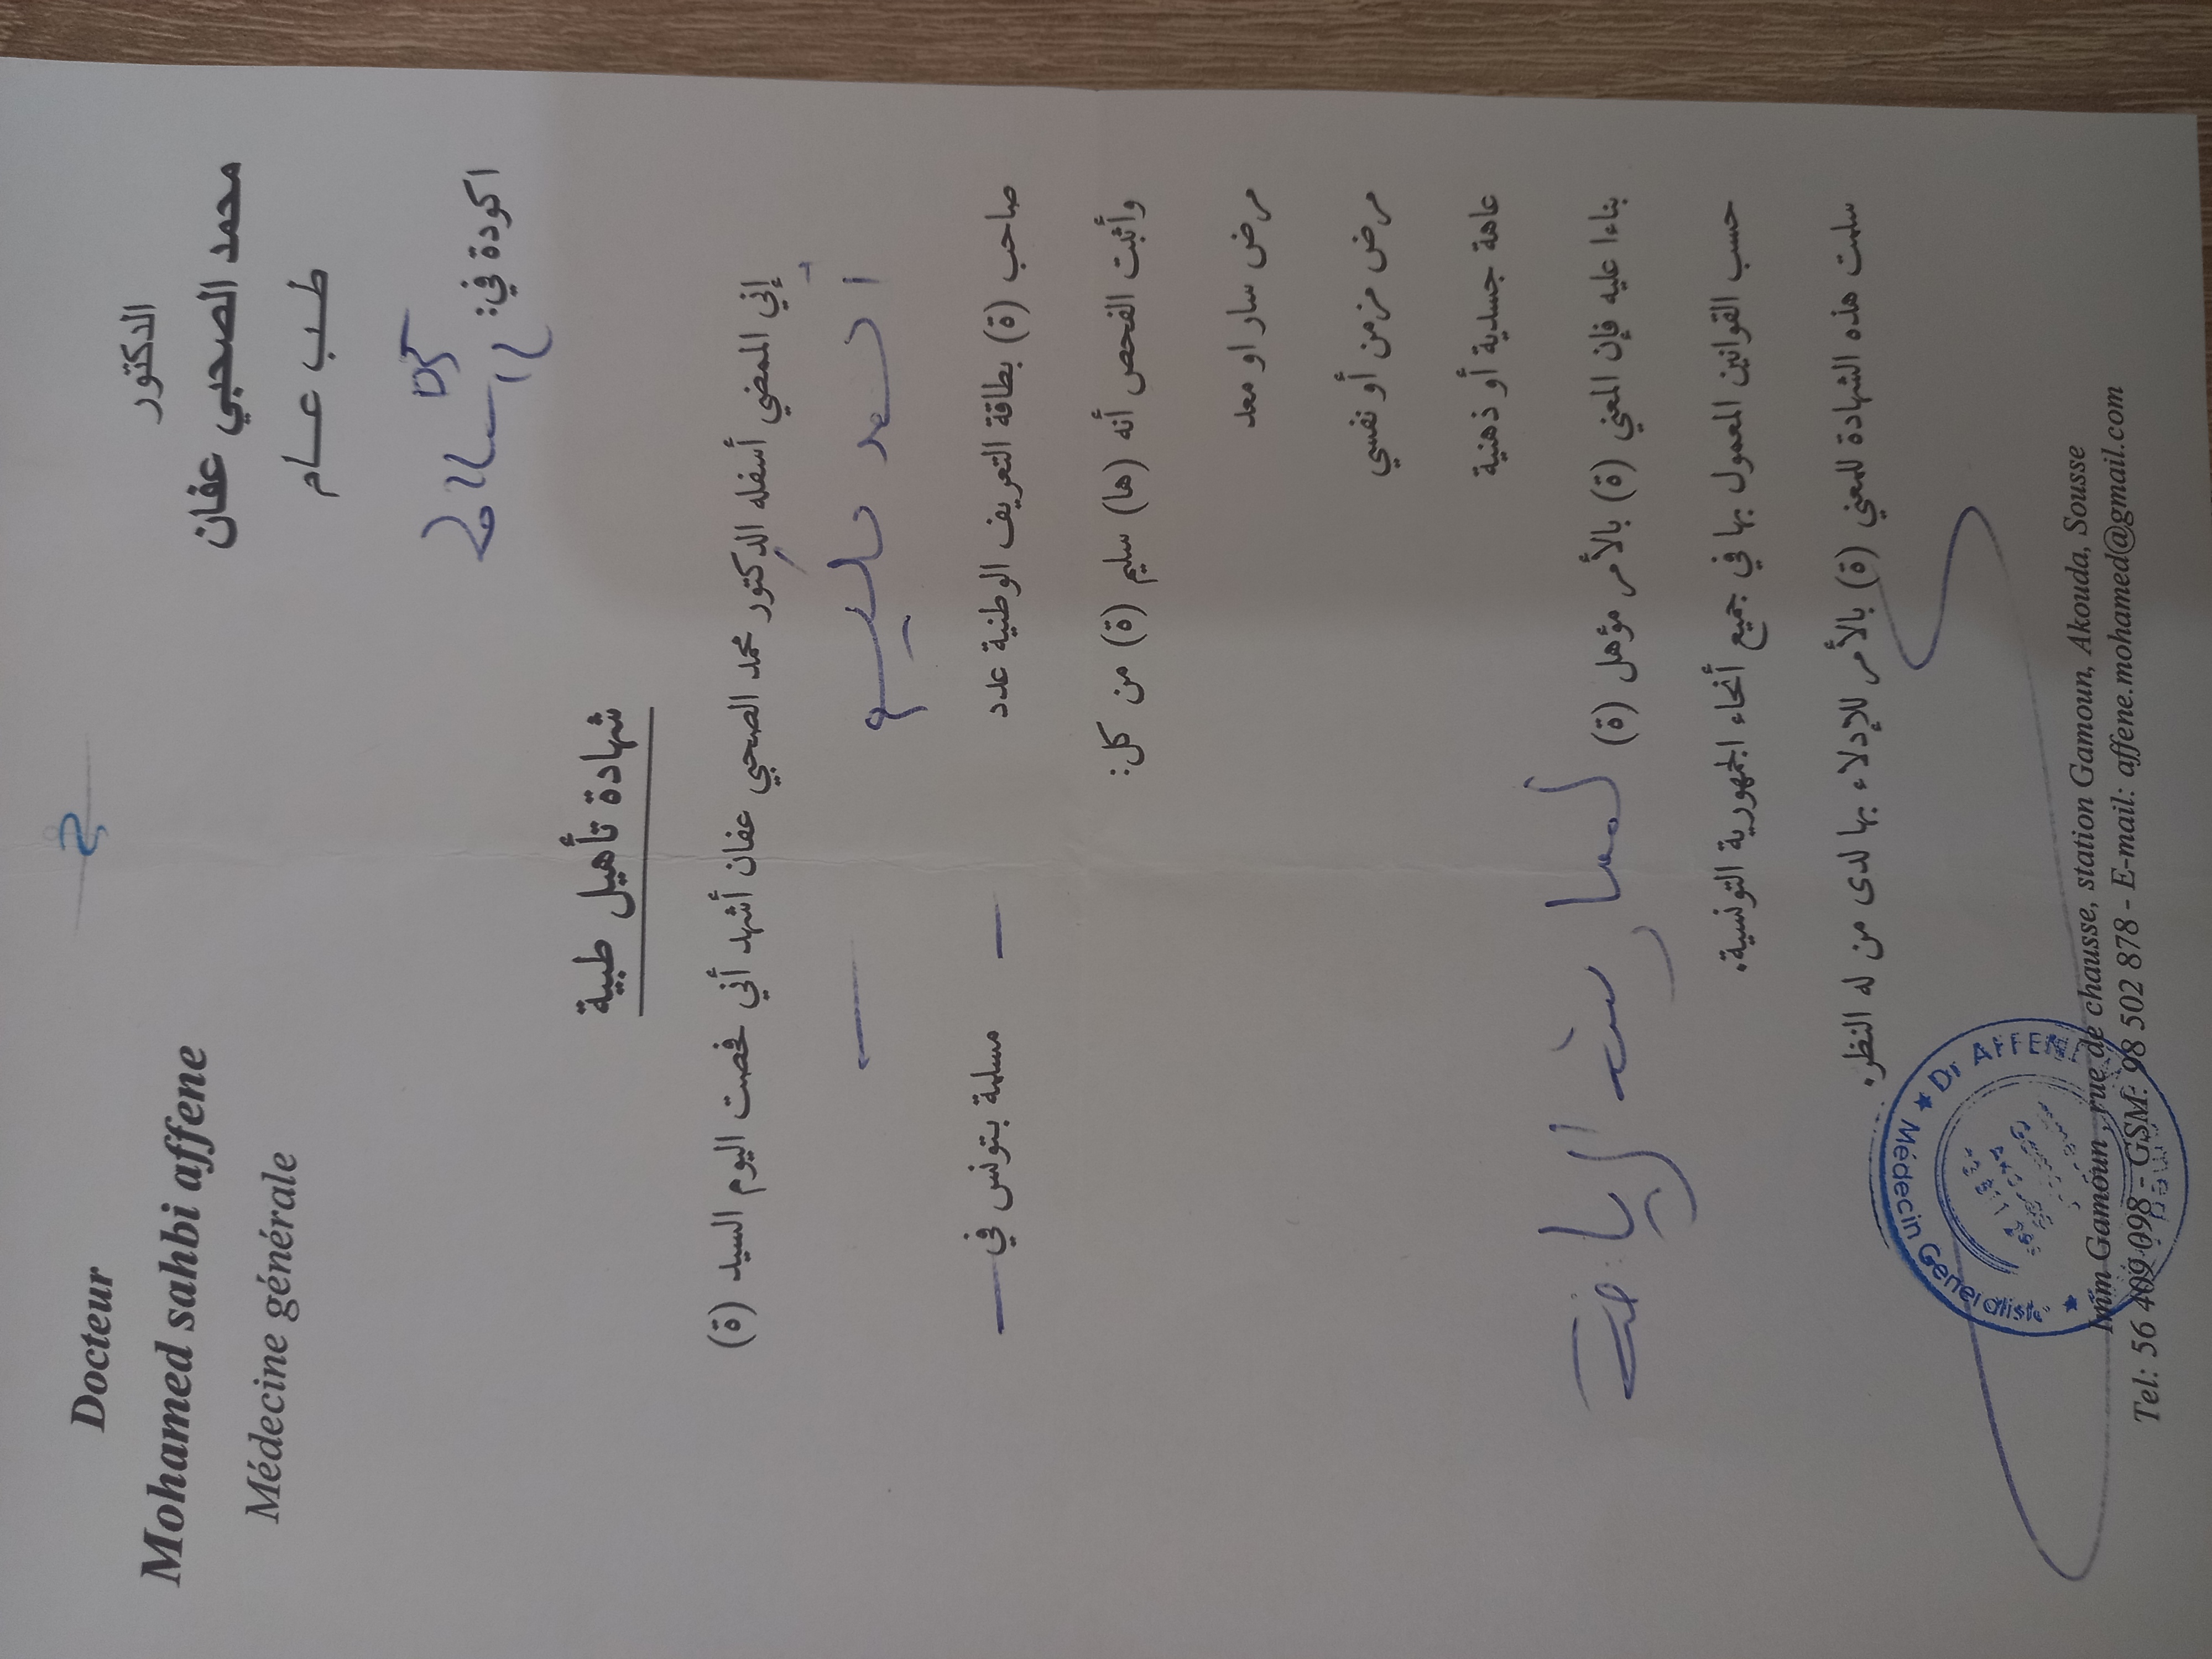 Docteur
Mohamed sahbi affene
Médecine générale
الدكتور
محمد الصحبي عفان
طب عام
اكودة في:
شهادة تأهيل طبية
إني الممضي أسفله الدكتور محمد الصحبي عفان أشهد أني فحصت اليوم السيد (ة)
صاحب (ة) بطاقة التعريف الوطنية عدد — مسلمة بتونس في —
وأثبت الفحص أنه (ها) سليم (ة) من كل:
مرض سار او معد
مرض مزمن أو نفسي
عاهة جسدية أو ذهنية
بناءا عليه فإن المعني (ة) بالأمر مؤهل (ة) لممارسة الرياضة
حسب القوانين المعمول بها في جميع أنحاء الجمهورية التونسية.
سلمت هذه الشهادة للمعني (ة) بالأمر للإدلاء بها لدى من له النظر.
★ Dr AFFENE
Médecin Généraliste ★
Imm Gamoun, rue de chausse, station Gamoun, Akouda, Sousse
Tel: 56 409 098 - GSM: 98 502 878 - E-mail: affene.mohamed@gmail.com